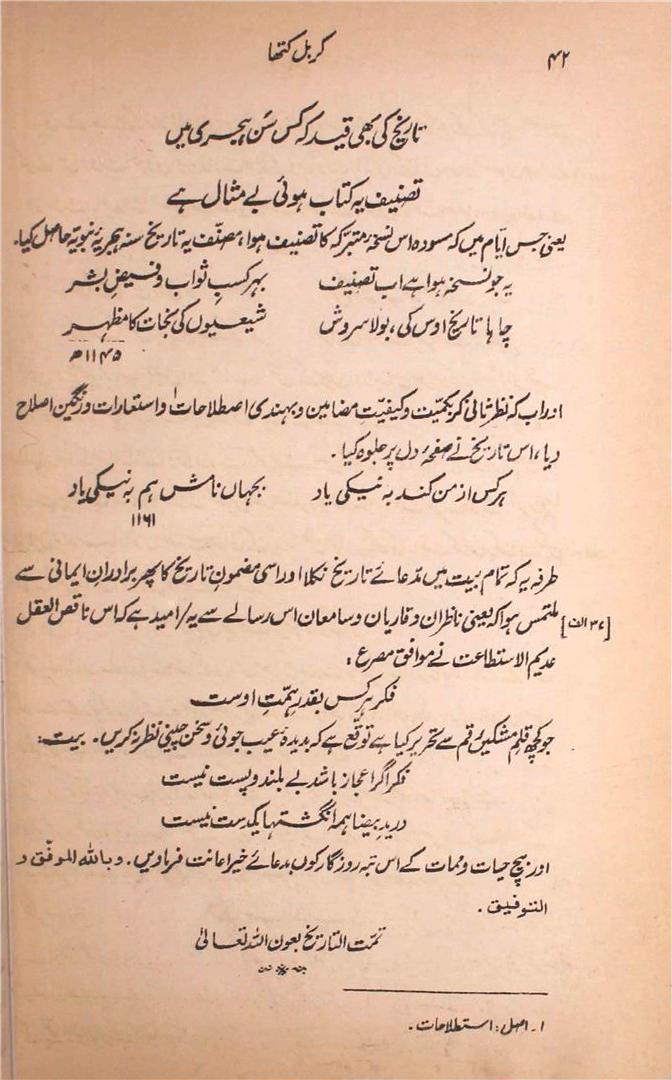 ۴۲ کربل کتھا
تاریخ کی بھی قید کہ کس سَن ہجری میں
تصنیف یہ کتاب ہوئی بے مثال ہے
یعنی جس ایّام میں کہ مسودہ اس نسخۂ متبرکہ کا تصنیف ہوا، مصنّف یہ تاریخ سنہ ہجریۂ نبویّہ حاصل کیا۔
یہ جو نسخہ ہوا ہے اب تصنیف بہر کسبِ ثواب و فیضِ بشر
چاہا تاریخ اوس کی، بولا سروش شیعیوں کی نجات کا مظہر
۱۱۴۵ھ
ازاب کہ نظرِ ثانی کر بکمیّت و کیفیّتِ مضامین و بہندی اصطلاحات۱ و استعارات و رنگین اصلاح
دیا، اس تاریخ نے صفحۂ دل پر جلوہ کیا۔
ہر کس از من کند بہ نیکی یاد بجہاں نامش ہم بہ نیکی باد
۱۱۶۱
طرفہ یہ کہ تمام بیت میں مدّعائے تاریخ نکلا اور اسی مضمونِ تاریخ کا پھر برادرانِ ایمانی سے
[۳۷ الف] ملتمس ہوا کہ یعنی ناظران و قاریان و سامعان اس رسالے سے یہ/امید ہے کہ اس ناقص العقل
عدیم الاستطاعت نے موافق مصرع:
فکر ہر کس بقدرِ ہمّتِ اوست
جو کچھ قلمِ مشکیں رقم سے تحریر کیا ہے توقّع ہے کہ بدیدۂ عیب جوئی و سخن چینی نظر نہ کریں۔ بیت:
فکر اگر اعجاز باشد بے بلند و پست نیست
در یدِ بیضا ہمہ انگشتہا یکدست نیست
اور بیچ حیات و ممات کے اس تبہ روزگار کوں بدعائے خیر اعانت فرماویں۔ و باللہ الموفّق و
التوفیق۔
تمّت التاریخ بعون اللہ تعالیٰ
۱۔ اصل: استطلاحات۔